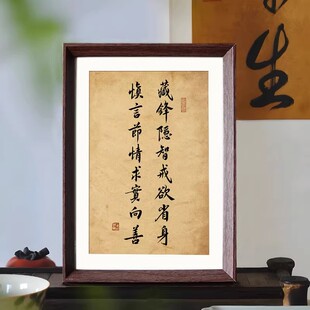 藏鋒隱智戒欲省身
慎言節情求實向善
生